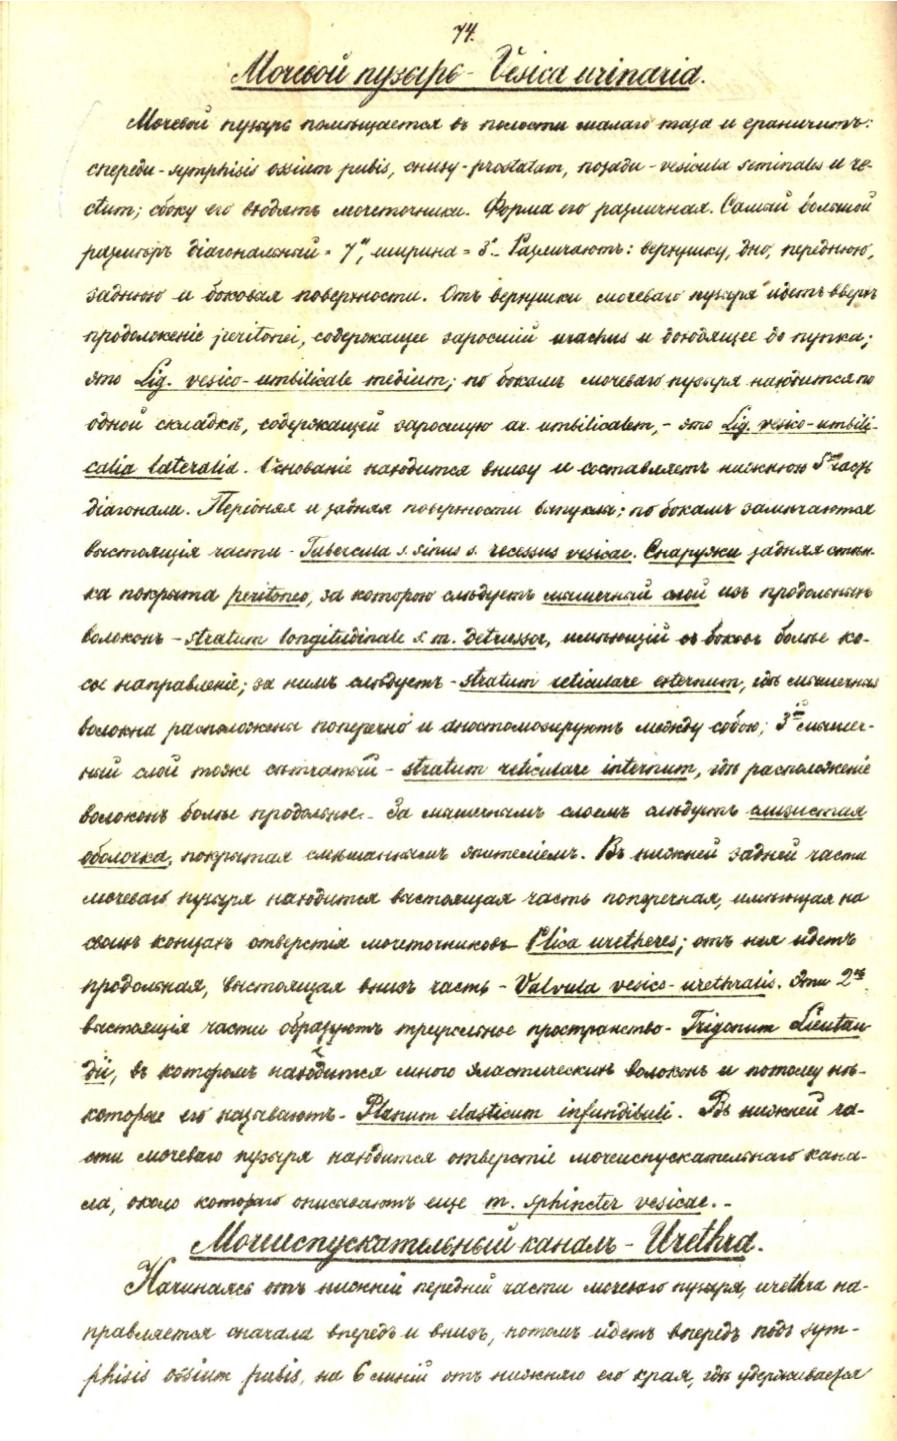 74.
Мочевой пузырь - Vesica urinaria.
Мочевой пузырь помѣщается въ полости малаго таза и граничитъ:
спереди - symphisis ossium pubis, снизу - prostatam, позади - vesicula seminales и re-
ctum; сбоку его входятъ мочеточники. Форма его различная. Самый большой
размѣръ діагональный = 7", ширина = 3". Различаютъ: верхушку, дно, переднюю,
заднюю и боковая поверхности. Отъ верхушки мочеваго пузыря идетъ вверхъ
продолженіе peritonei, содержащее заросшій urachus и доходящее до пупка;
это Lig. vesico-umbilicale medium; по бокамъ мочеваго пузыря находится по
одной складкѣ, содержащей заросшую ar. umbilicalem, - это Lig. vesico-umbili-
calia lateralia. Основаніе находится внизу и составляетъ нижнюю 5ю часть
діагонали. Передняя и задняя поверхности выпуклы; по бокамъ замѣчаются
выстоящія части - Tubercula s. sinus s. recessus vesicae. Снаружи задняя стѣн-
ка покрыта peritoneo, за которою слѣдуетъ мышечный слой изъ продольныхъ
волоконъ - stratum longitudinale s. m. detrussor, имѣющій съ боковъ болѣе ко-
сое направленіе; за нимъ слѣдуетъ - stratum reticulare externum, гдѣ мышечныя
волокна расположены поперечно и анастомозируютъ между собою; 3ій мышеч-
ный слой тоже сѣтчатый - stratum reticulare internum, гдѣ расположеніе
волоконъ болѣе продольное. - За мышечнымъ слоемъ слѣдуетъ слизистая
оболочка, покрытая смѣшаннымъ эпителіемъ. Въ нижней задней части
мочеваго пузыря находится выстоящая часть поперечная, имѣющая на
своихъ концахъ отверстія мочеточниковъ - Plica uretheres; отъ нея идетъ
продольная, выстоящая внизъ часть - Valvula vesico-urethralis. Эти 2ѣ
выстоящія части образуютъ треугольное пространство - Trigonum Lieutau-
dii, въ которомъ находится много эластическихъ волоконъ и потому нѣ-
которые его называютъ - Planum elasticum infundibuli. Въ нижней ча-
сти мочеваго пузыря находится отверстіе мочеиспускательнаго кана-
ла, около котораго описываютъ еще m. sphincter vesicae. -
Мочеиспускательный каналъ - Urethra.
Начинаясь отъ нижней передней части мочеваго пузыря, urethra на-
правляется сначала впередъ и внизъ, потомъ идетъ впередъ подъ sym-
phisis ossium pubis, на 6 линій отъ нижняго его края, гдѣ удерживается